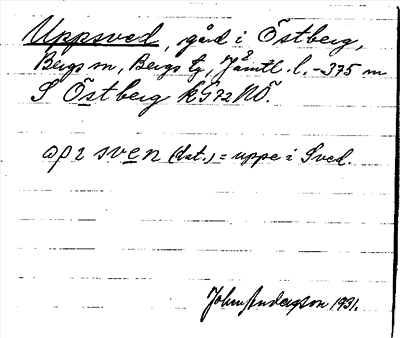 Uppsved, gård i Östberg,
Bergs sn, Bergs tg, Jämtl. l. -375 m
S Östberg kG72NÖ.
ωp2 sven (dat.) = uppe i Sved.
John Anderzon 1931.